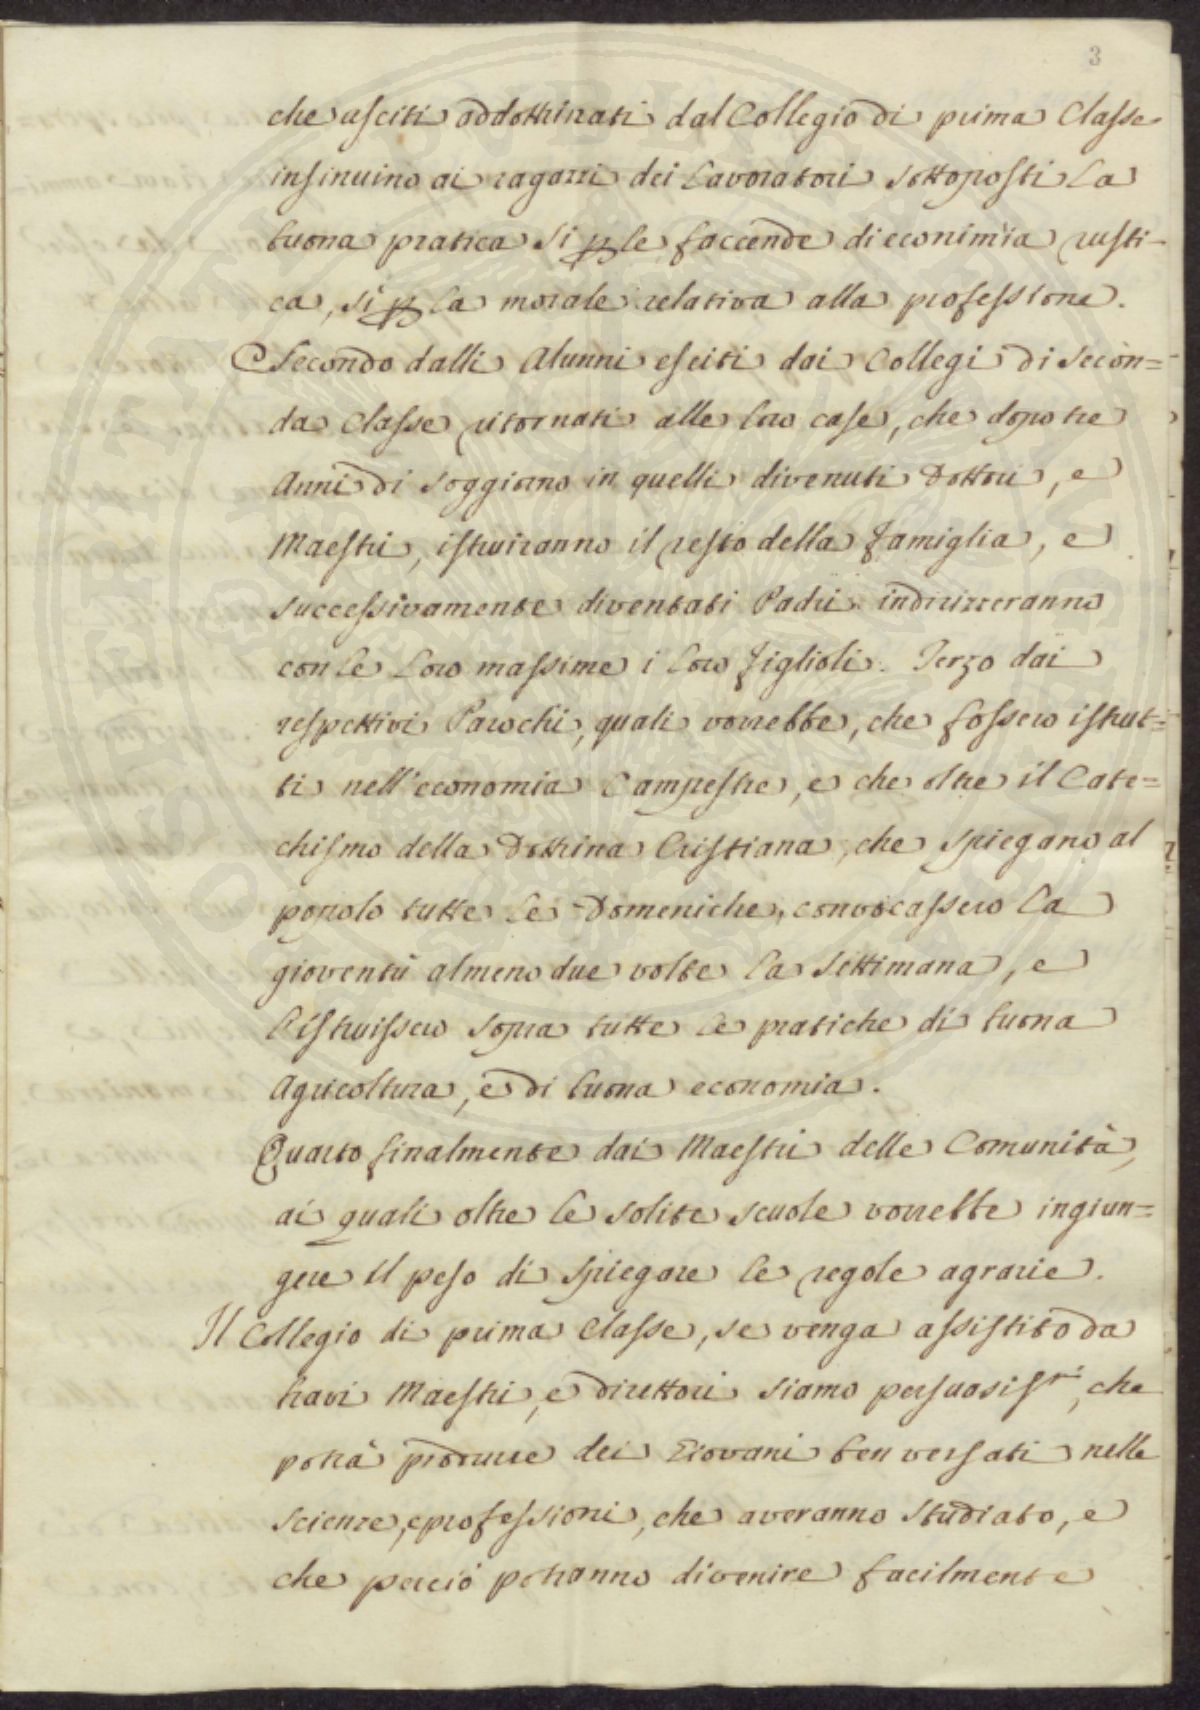 3
che usciti addottrinati dal Collegio di prima Classe
insinuino ai ragazzi dei Lavoratori sottoposti la
buona pratica si per le faccende di econimia rusti-
ca, si per la morale relativa alla professione.
Secondo dalli Alunni esciti dai Collegi di secon=
da Classe ritornati alle loro case, che dopo tre
Anni di soggiorno in quelli divenuti Dottori, e
Maestri, istruiranno il resto della famiglia, e
successivamente diventati Padri indrizzeranno
con le loro massime i loro figlioli. Terzo dai
respettivi Parochi, quali vorrebbe, che fossero istrut=
ti nell'economia Campestre, e che oltre il Cate=
chismo della Dottrina Cristiana, che spiegano al
popolo tutte le Domeniche, convocassero la
gioventù almeno due volte la Settimana, e
l'istruissero sopra tutte le pratiche di buona
Agricoltura, e di buona economia.
Quarto finalmente dai Maestri delle Comunità,
ai quali oltre le solite scuole vorrebbe ingiun=
gere il peso di spiegare le regole agrarie.
Il Collegio di prima Classe, se venga assistito da
bravi Maestri, e direttori siamo persuasissmi, che
potrà produrre dei Giovani ben versati nelle
scienze, e professioni, che averanno studiato, e
che perciò potranno divenire facilmente